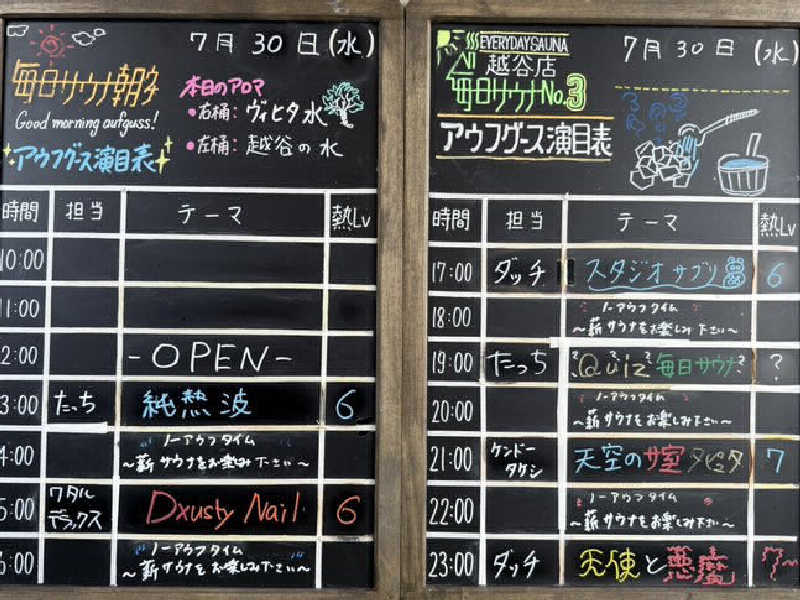 7月30日(水)
毎日サウナ朝夕
Good morning aufguss!
アウフグース演目表
本日のアロマ
・右桶: ヴィヒタ水
・左桶: 越谷の水
時間 担当 テーマ 熱Lv
10:00
11:00
2:00 -OPEN-
3:00 たっち 純熱波 6
4:00 ノーアウフタイム
〜薪サウナをお楽しみ下さい〜
5:00 ワタルデラックス Dxusty Nail 6
6:00 ノーアウフタイム
〜薪サウナをお楽しみ下さい〜
EVERYDAYSAUNA
越谷店
毎日サウナNo.3
7月30日(水)
アウフグース演目表
時間 担当 テーマ 熱Lv
17:00 ダッチ スタジオサブリ 6
18:00 ノーアウフタイム
〜薪サウナをお楽しみ下さい〜
19:00 たっち Quiz 毎日サウナ ?
20:00 ノーアウフタイム
〜薪サウナをお楽しみ下さい〜
21:00 ケンドータケシ 天空のサ室ラピュタ 7
22:00 ノーアウフタイム
〜薪サウナをお楽しみ下さい〜
23:00 ダッチ 天使と悪魔